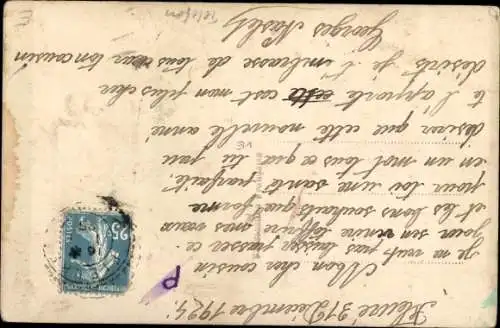 Fleurie 31 Decembre 1924
Mon cher cousin
Je ne veut pas laisser passer ce
jour sen venire toffrire mes vaux
et les bons souhaits que forme
pour toi une santé parfaite
en un mot tous ce que tu peu
desirer que cette nouvelle anné
te l'apporte cest mon plus cher
désirs je t'imbrasse de tous cœur ton cousin
Georges
25c
POSTES
Telefon